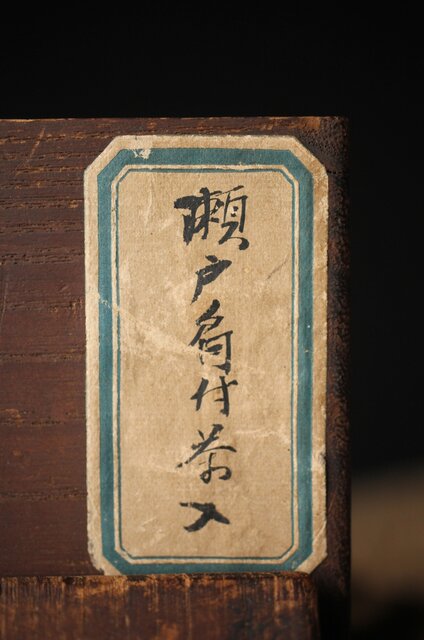 瀬戸肩付茶入